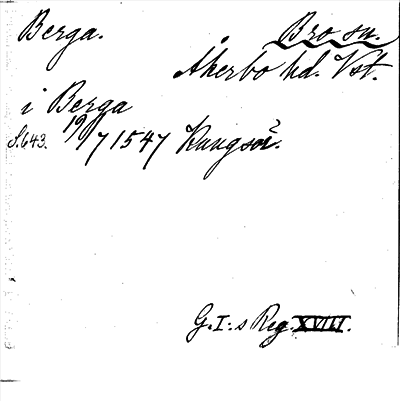 Berga. Bro sn.
Åkerbo hd. Vst.
i Berga
S.643. 19/7 1547 Kungsör.
G.I:s Reg. XVIII.